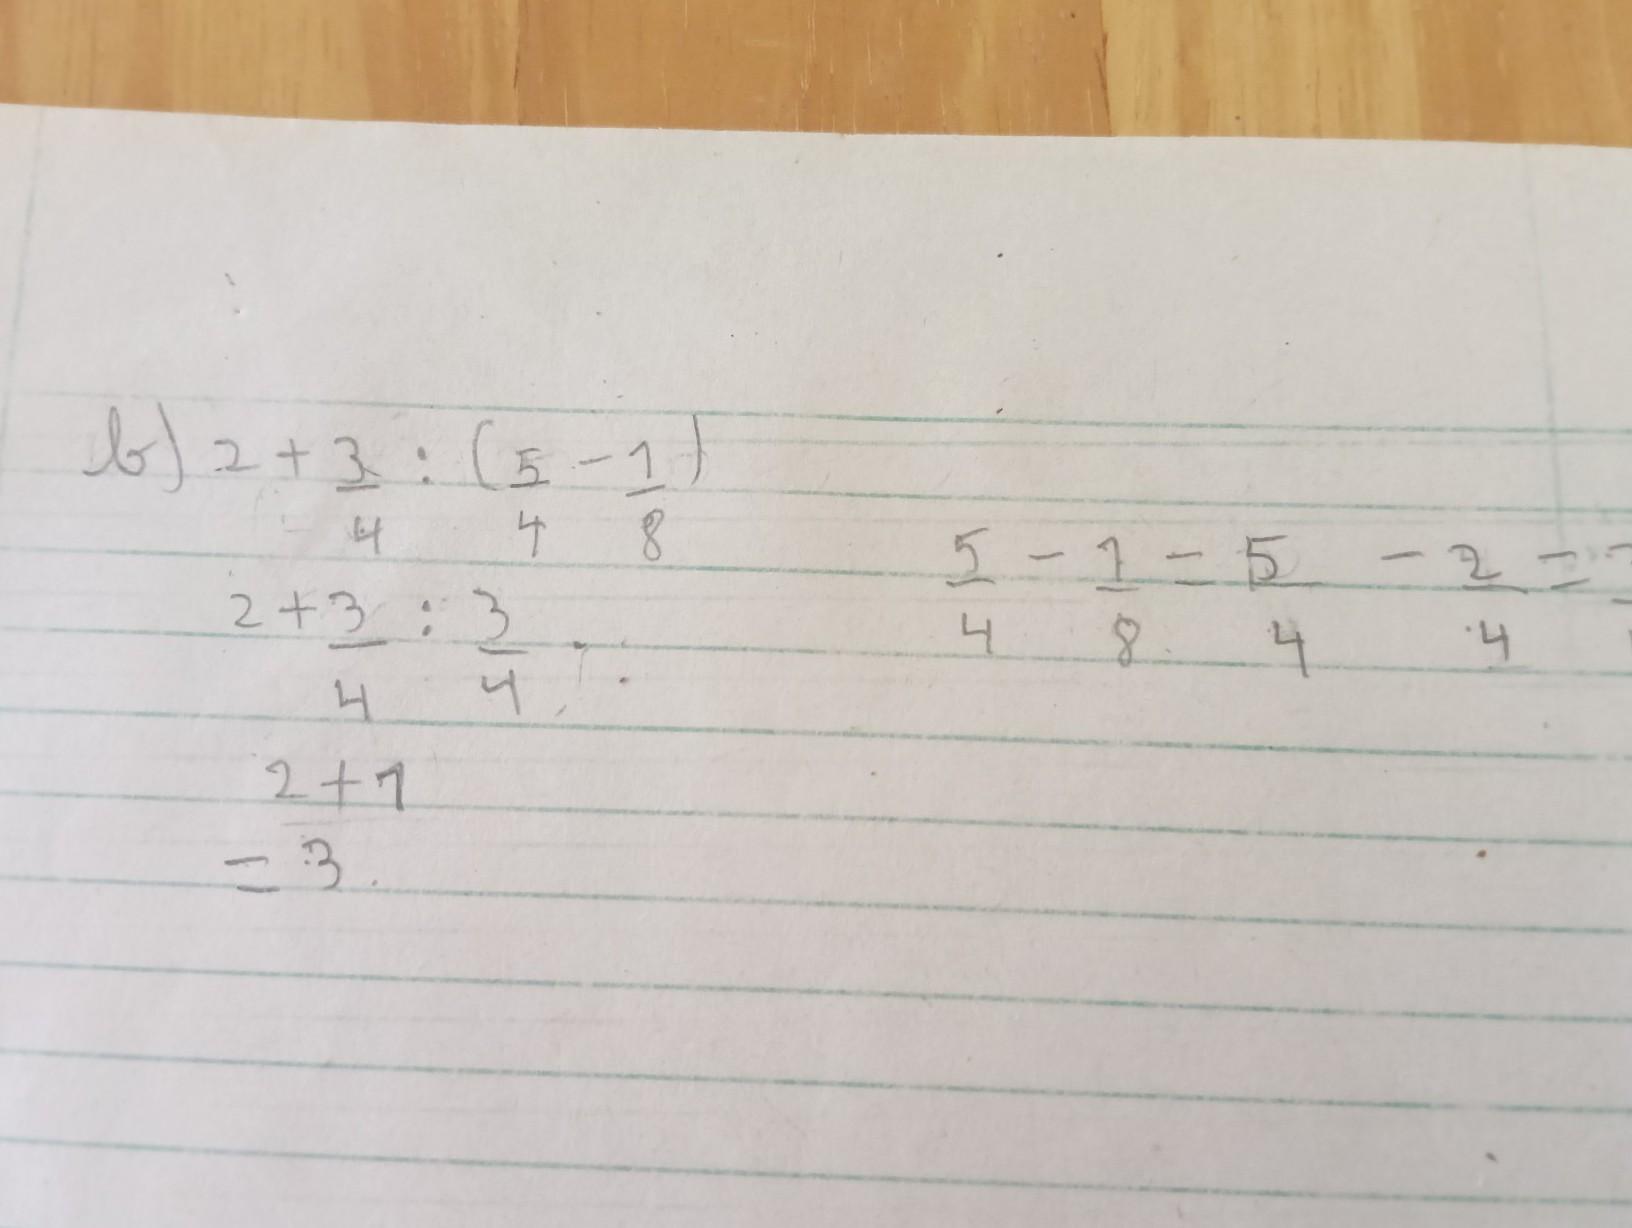 b) 2 + 3/4 : (5/4 - 1/8)
2 + 3/4 : 3/4
2 + 1
= 3.
5/4 - 1/8 = 5/4 - 2/4 =